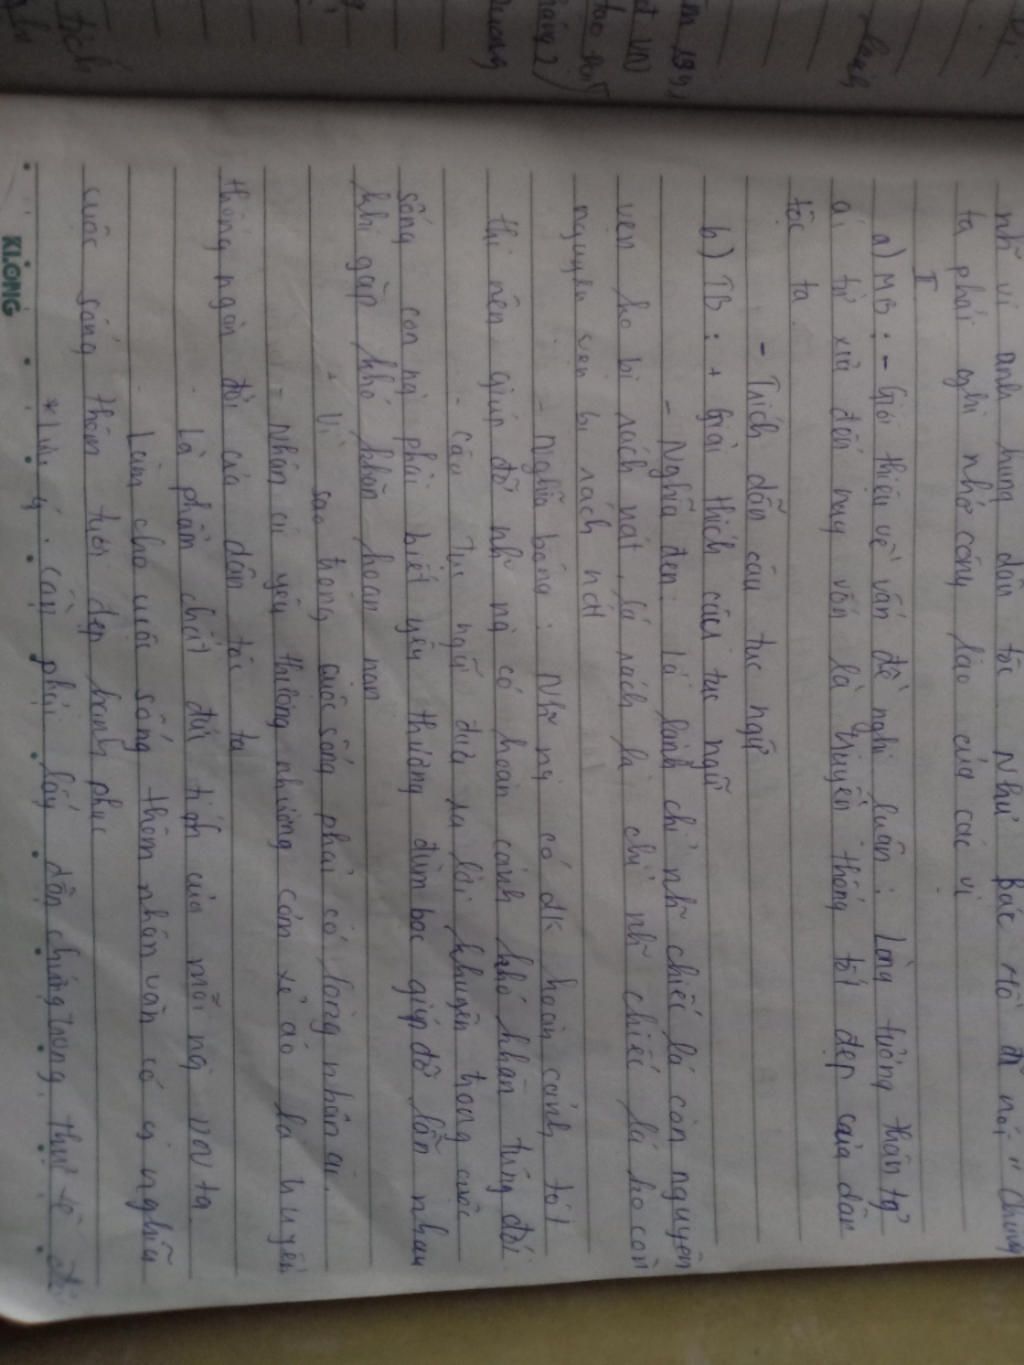 nh~ vị anh hùng dân tộc Như Bác Hồ đã nói " Chúng
ta phải ghi nhớ công lao của các vị
I
a) MB : - Giới thiệu về vấn đề nghị luận : Lòng tương thân tg
ái từ xưa đến nay vốn là truyền thống tốt đẹp của dân
tộc ta
- Trích dẫn câu tục ngữ
b) TB : + Giải thích câu tục ngữ
- Nghĩa đen : lá lành chỉ nh~ chiếc lá còn nguyên
vẹn ko bị rách nát, lá rách là chỉ nh~ chiếc lá ko còn
nguyên vẹn bị rách nát
- Nghĩa bóng : Nh~ ng có đk hoàn cảnh tốt
thì nên giúp đỡ nh~ ng có hoàn cảnh khó khăn túng đói
- Câu tục ngữ đưa ra lời khuyên trong cuộc
sống con ng phải biết yêu thương đùm bọc giúp đỡ lẫn nhau
khi gặp khó khăn hoạn nạn
+ Vì sao trong cuộc sống phải có lòng nhân ái.
- Nhân ái yêu thương nhường cơm xẻ áo là truyền
thống ngàn đời của dân tộc ta
Là phẩm chất đức tính của mỗi ng VN ta
Làm cho cuộc sống thêm nhân văn có ý nghĩa
cuộc sống thêm tươi đẹp hạnh phúc
* Lưu ý : cần phải lấy dẫn chứng trong thực tế
KLONG